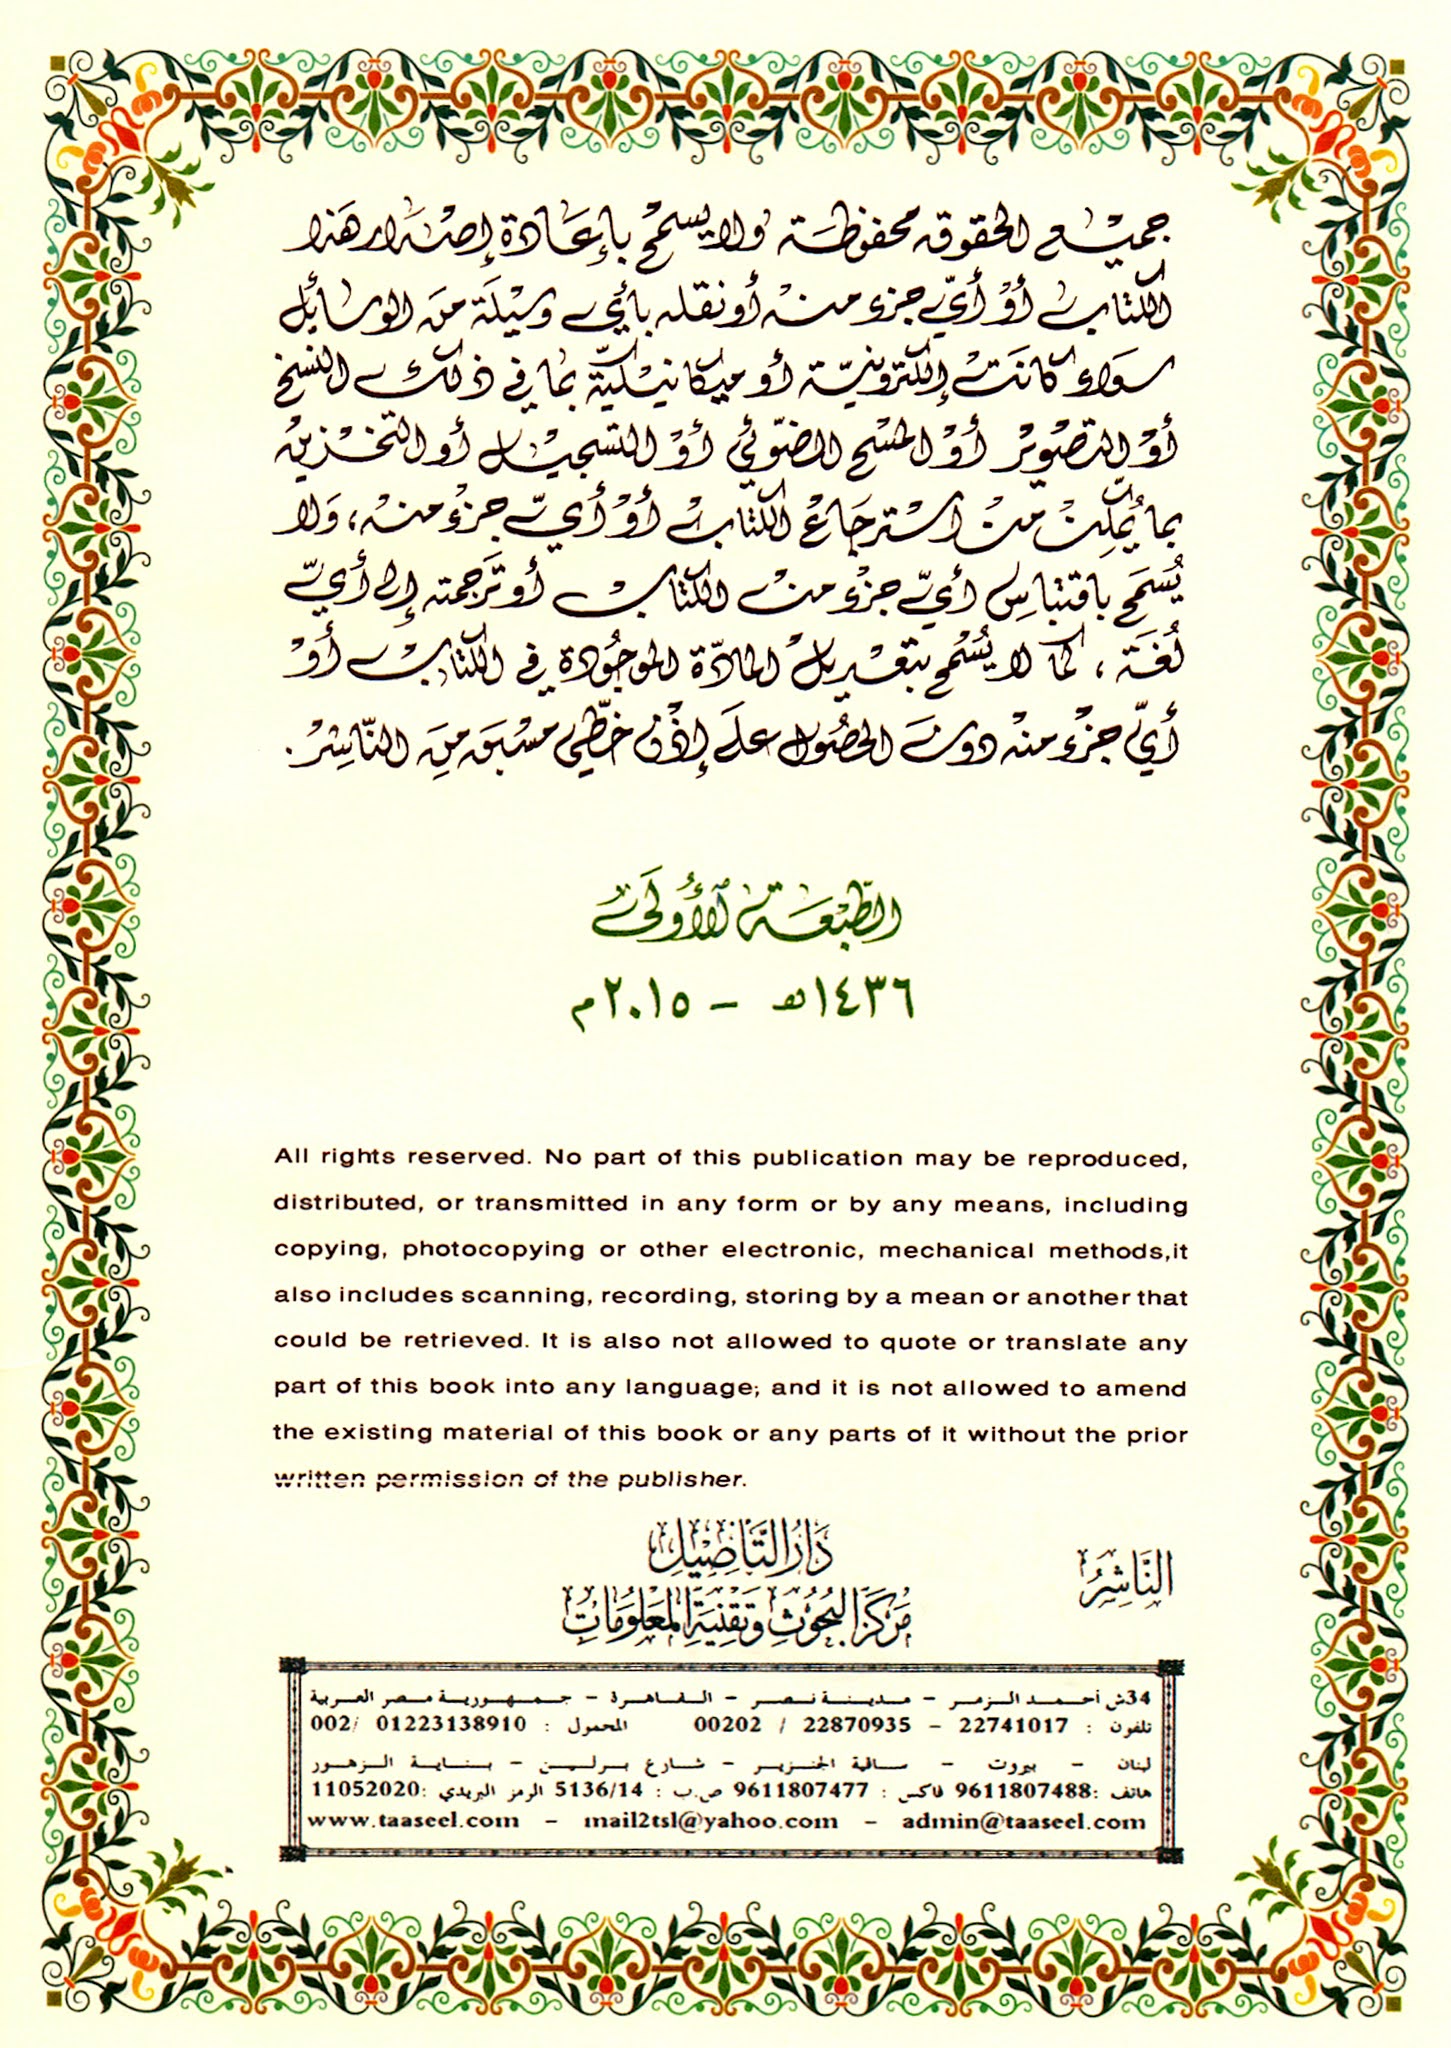 جميع الحقوق محفوظة ولا يسمح بإعادة إصدار هذا
الكتاب أو أيّ جزء منه أو نقله بأي وسيلة من الوسائل
سواء كانت إلكترونية أو ميكانيكية بما في ذلك النسخ
أو التصوير أو المسح الضوئي أو التسجيل أو التخزين
بما يمكّن من استرجاع الكتاب أو أيّ جزء منه، ولا
يُسمح باقتباس أيّ جزء من الكتاب أو ترجمته إلى أيّ
لغة، كما لا يُسمح بتعديل المادّة الموجودة في الكتاب أو
أيّ جزء منه دون الحصول على إذن خطّي مسبق من النّاشر.
الطّبعة الأولى
١٤٣٦هـ - ٢٠١٥م
All rights reserved. No part of this publication may be reproduced,
distributed, or transmitted in any form or by any means, including
copying, photocopying or other electronic, mechanical methods,it
also includes scanning, recording, storing by a mean or another that
could be retrieved. It is also not allowed to quote or translate any
part of this book into any language; and it is not allowed to amend
the existing material of this book or any parts of it without the prior
written permission of the publisher.
النَّاشِرُ
دَارُ التَّأصِيْل
مَركزُ البُحُوثِ وَتَقْنِيَةِ المَعْلُومَاتِ
34ش أحمد الزمر - مدينة نصر - القاهرة - جمهورية مصر العربية
تلفون : 22741017 - 22870935 / 00202 المحمول : 01223138910 /002
لبنان - بيروت - ساقية الجنزير - شارع برلين - بناية الزهور
هاتف :9611807488 فاكس : 9611807477 ص.ب : 5136/14 الرمز البريدي :11052020
www.taaseel.com - mail2tsl@yahoo.com - admin@taaseel.com